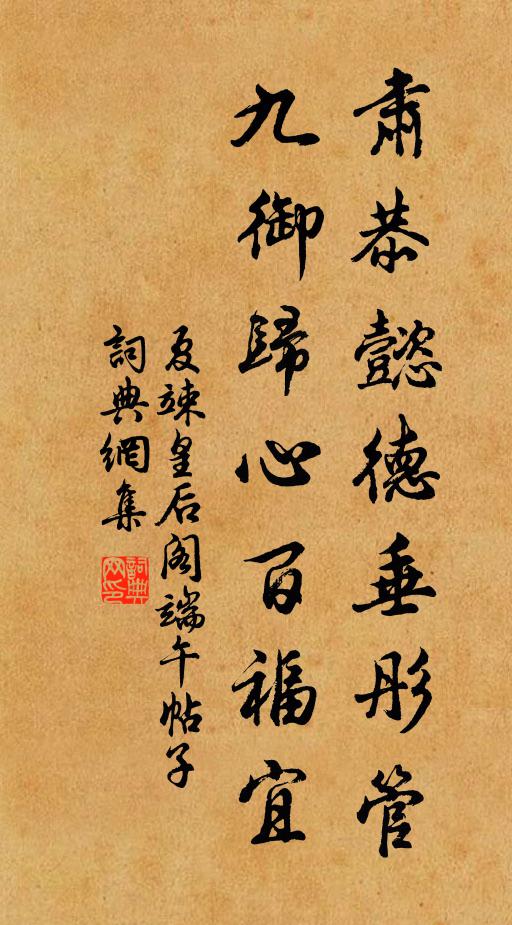 肅恭懿德垂彤管
九御歸心百福宜
夏竦皇后阁端午帖子
詞典網集
詞典网印